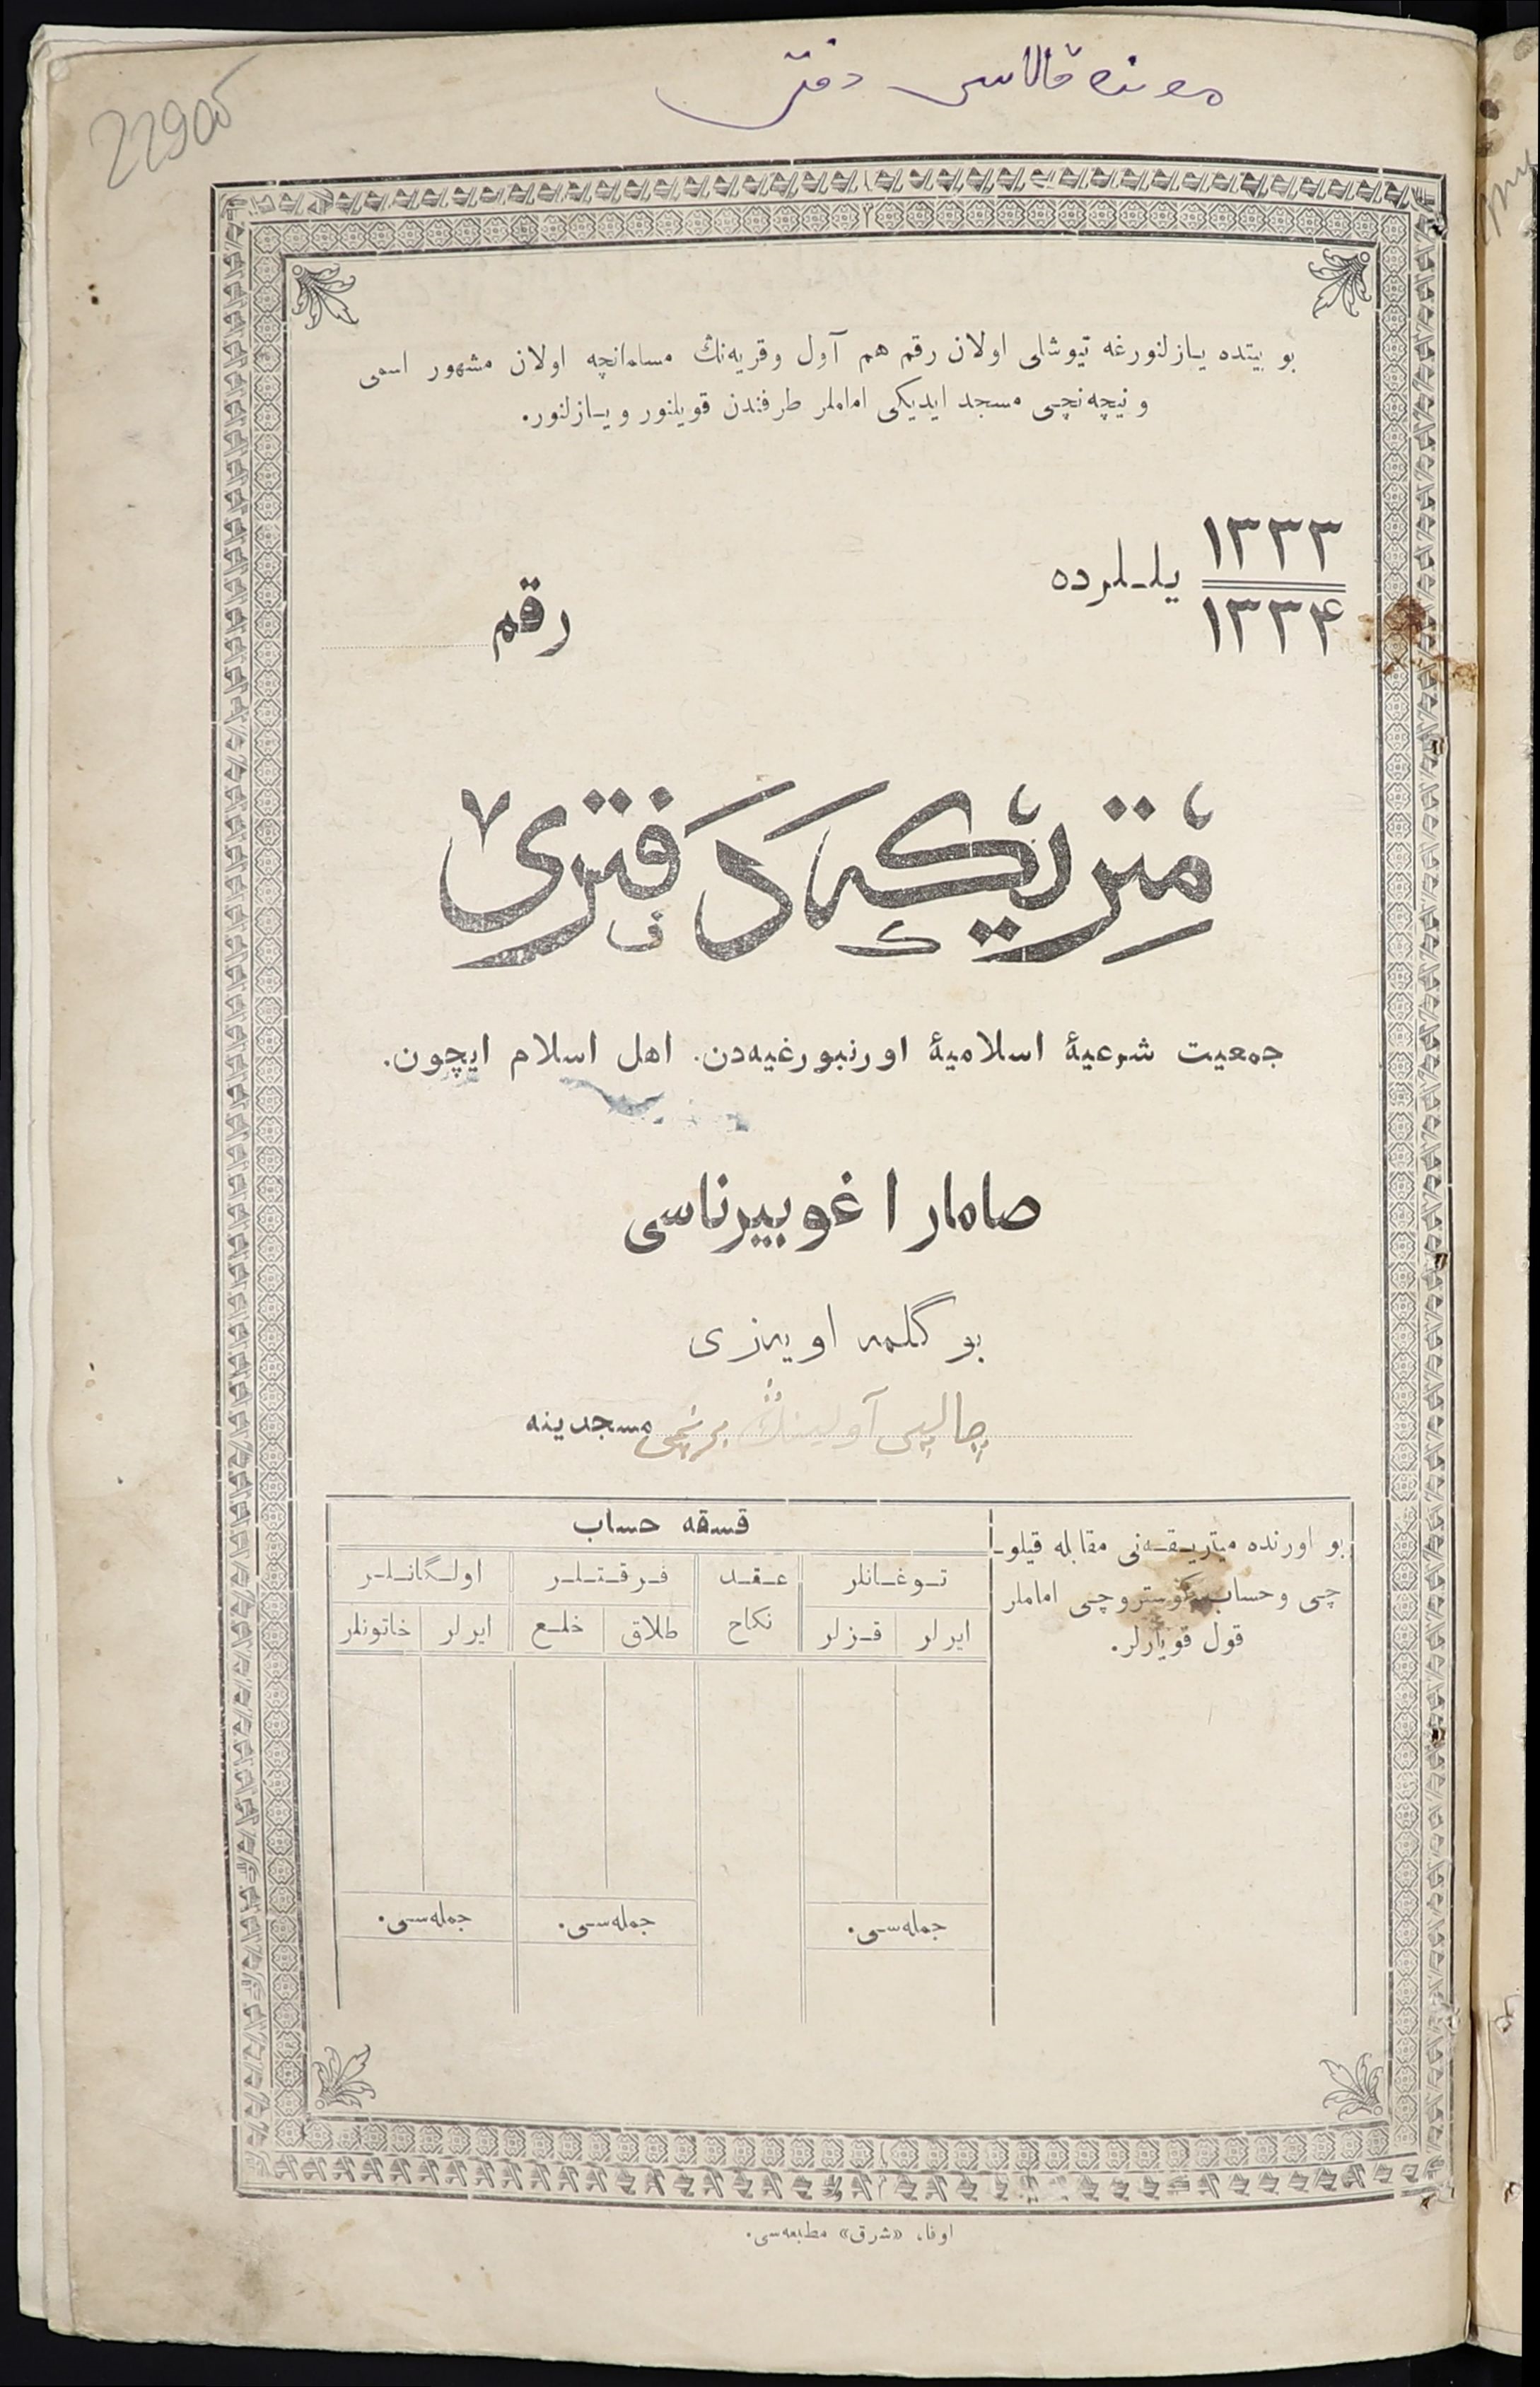 موندە قالاسی دفتر
229об
بو بیتده یازلنورغه تیوشلی اولان رقم هم آول وقریه‌نڭ مسلمانچه اولان مشهور اسمی
و نیچه‌نچی مسجد ایدیکی اماملر طرفندن قویلنور ویازلنور.
١٣٣٣
١٣٣۴ یللرده
رقم
مِتریکه دَفتری
جمعیت شرعیۀ اسلامیۀ اورنبورغیه‌دن. اهل اسلام ایچون.
صامارا غوبیرناسی
بوگلمه اویه‌زی
چالپی آولیمنڭ برنچی مسجدینه
بو اورنده میتریقه‌نی مقابله قیلو-
چی وحساب کوستروچی اماملر
قول قویارلر.
قسقه حساب
توغانلر عقد فرقتلر اولگانلر
ایرلر قزلر نکاح طلاق خلع ایرلر خاتونلر
جمله‌سی. جمله‌سی. جمله‌سی.
اوفا، «شرق» مطبعه‌سی.